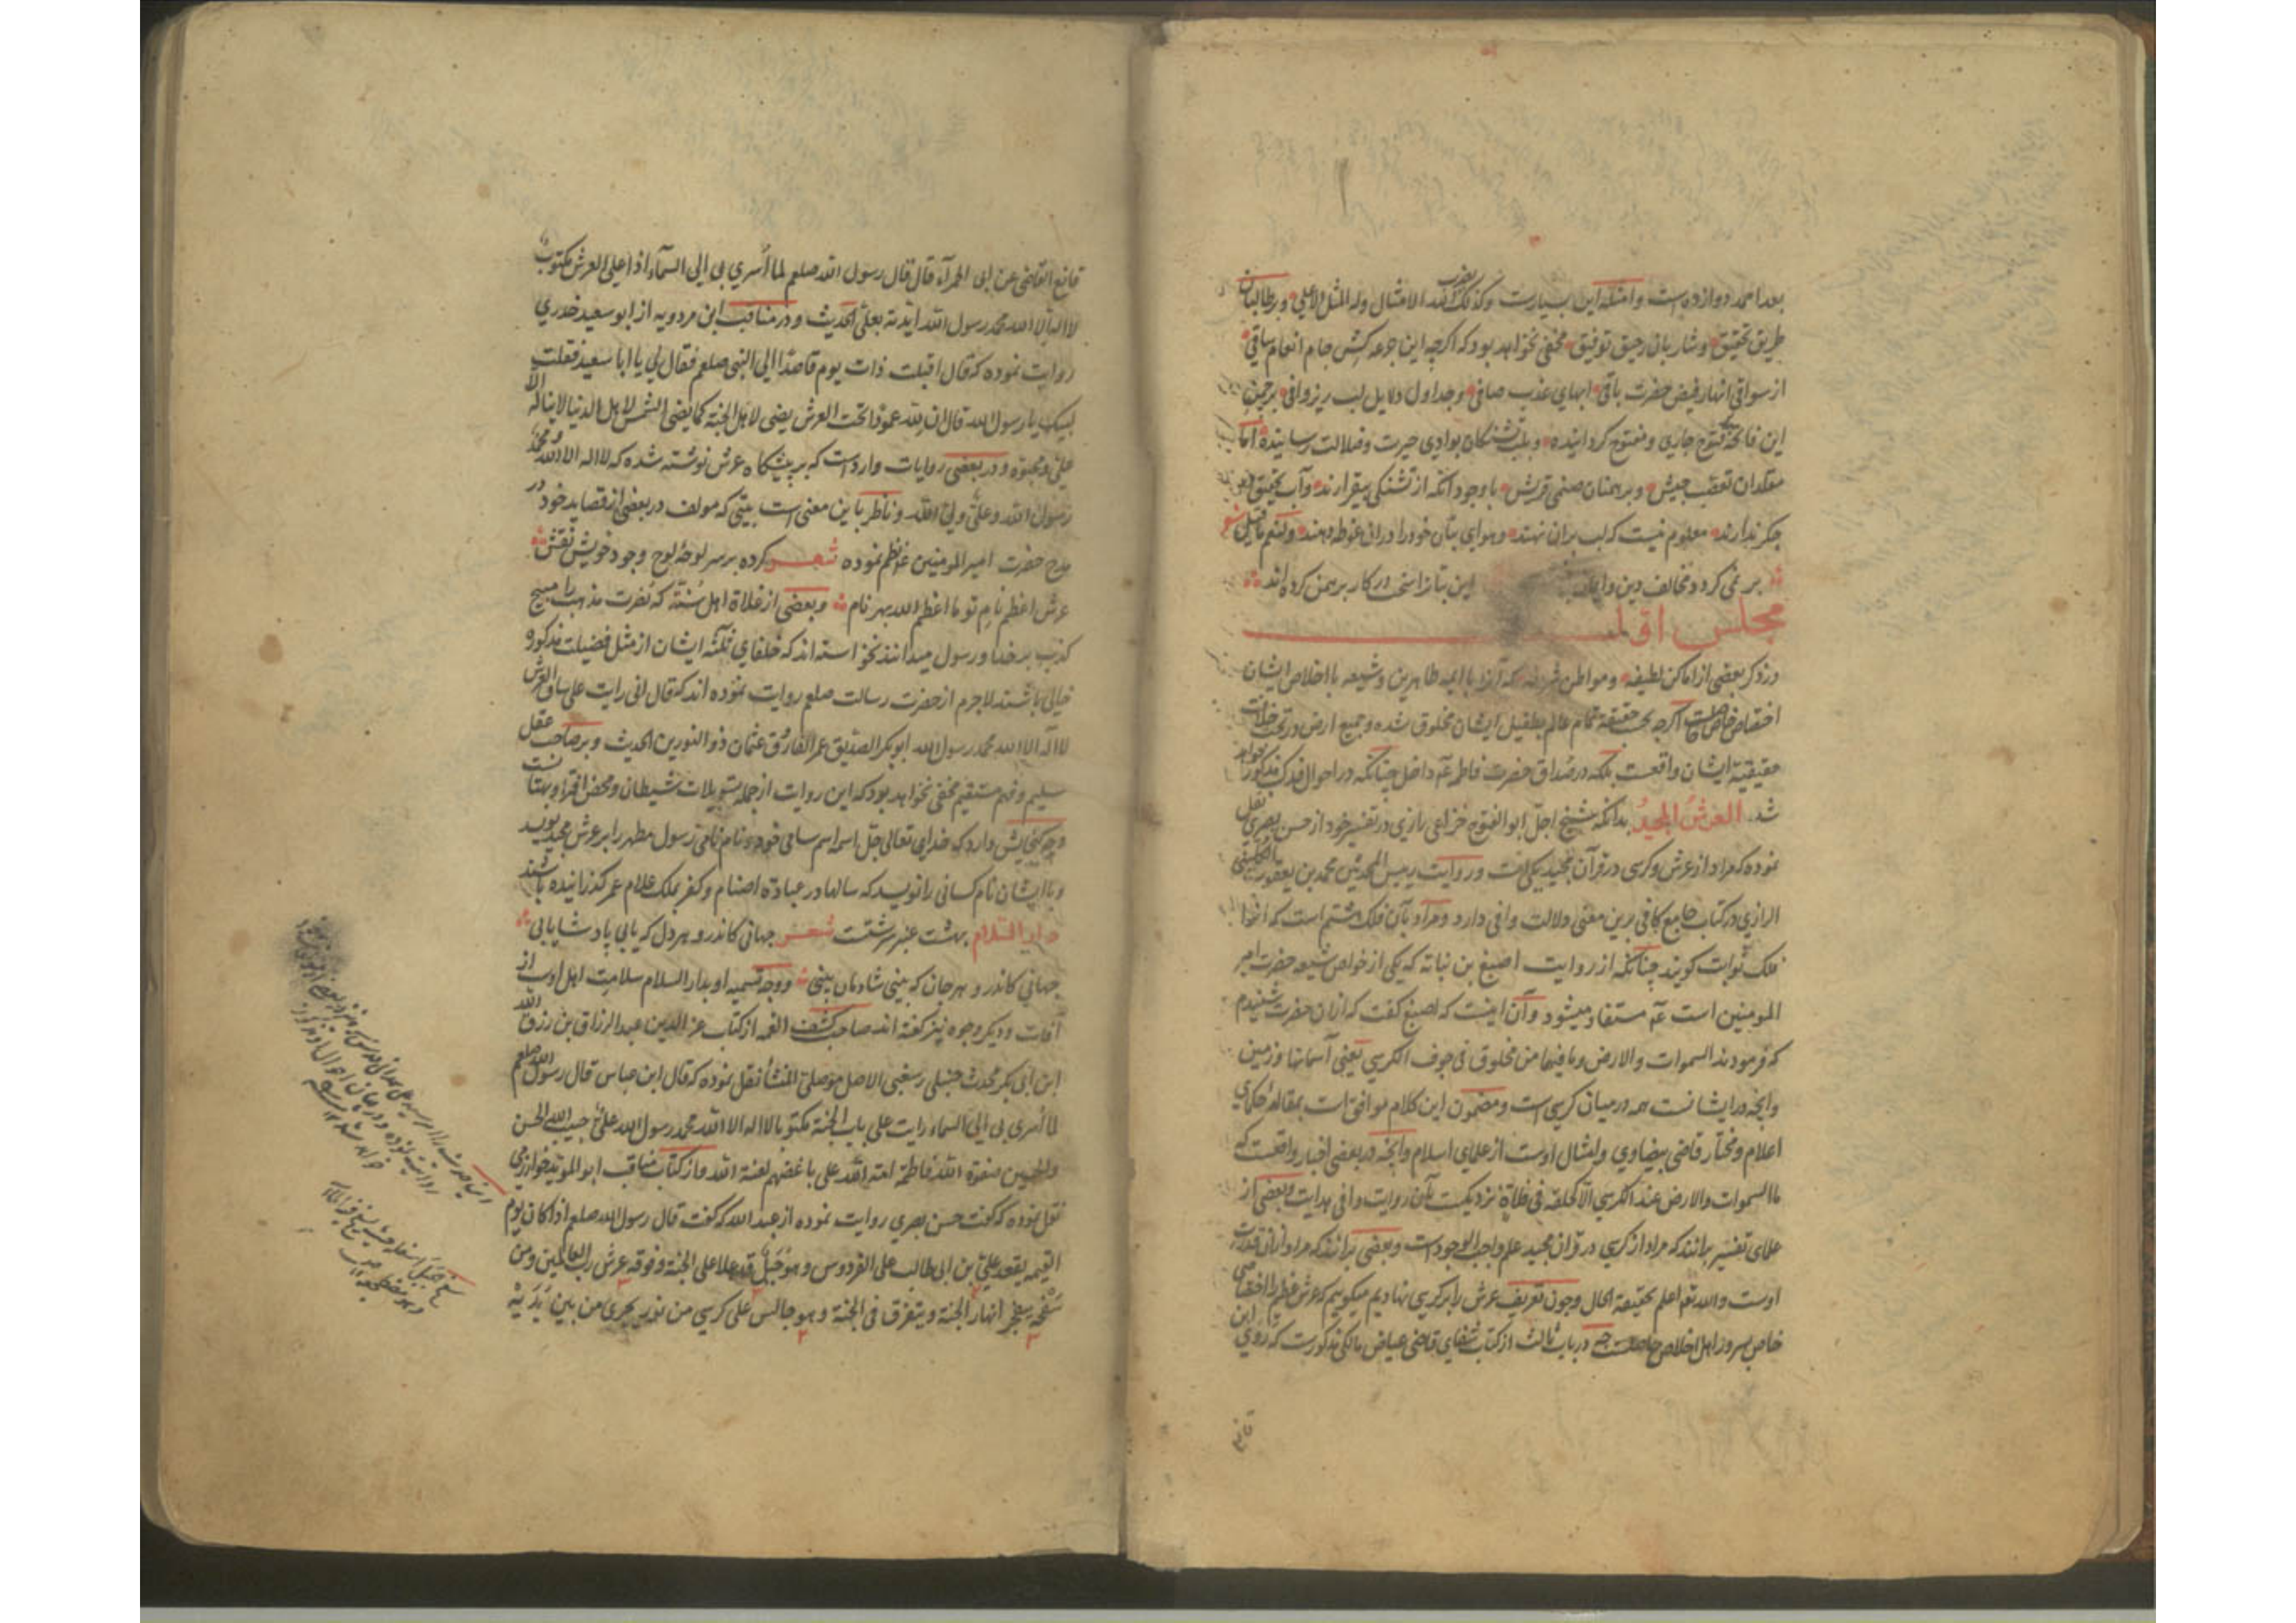 بعد احمد دوازده است و امثله این بسیارست و کذلک یضرب الله الامثال وله المثل الاعلی و بر طالبان
طریق تحقیق و شاربان رحیق توفیق مخفی نخواهد بود که اکرچه این جرعه کش جام انعام ساقی
از سواقی انهار فیض حضرت باقی ابهای عذب صافی و جداول دلایل لب ریز وافی برچمن
این فاتحه فتوح جاری و مفتوح کردانیده و بلب تشنکان بوادی حیرت و ضلالت رسانیده اما
مقلدان تعصب جیش و برهمنان صنمی قریش با وجود آنکه از تشنکی بیقرارند و آب تحقیق در
جکر ندارند معلوم نیست که لب بران نهند و هوای بتان خود را در ان غوطه دهند ولنعم ما قیل شعر
بر نمی کردد مخالف دین و این بتانرا سخی در کار برهمن کرده اند
مجلس اول
در ذکر بعضی از اماکن لطیفه و مواطن شریفه که آنرا با ایمه طاهرین و شیعه با اخلاص ایشان
اختصاص خاص حاصلست اکرچه بحقیقة تمام عالم بطفیل ایشان مخلوق شده و جمیع ارض در تحت خلافت
حقیقیة ایشان واقعست بلکه در صداق حضرت فاطمه ع داخل چنانکه در احوال فدک مذکور خواهد
شد العرش المجید بدانکه شیخ اجل ابو الفتوح خزاعی رازی در تفسیر خود از حسن بصری نقل
نموده که مراد از عرش و کرسی در قرآن مجید یکی است و روایت رییس المحدثین محمد بن یعقوب الکلینی
الرازی در کتاب جامع کافی برین معنی دلالت وافی دارد و مراد بآن فلک هشتم است که انرا
فلک ثوابت کویند چنانکه از روایت اصبغ بن نباته که یکی از خواص شیعه حضرت امیر
المومنین است ع مستفاد میشود و آن اینست که اصبغ کفت که از ان حضرت شنیدم
که فرمودند السموات والارض وما فیهما من مخلوق فی جوف الکرسی یعنی آسمانها و زمین
و آنچه در ایشانست همه در میان کرسی است و مضمون این کلام موافق است بمقاله حکمای
اعلام و مختار قاضی بیضاوی و امثال اوست از علمای اسلام و آنچه در بعضی اخبار واقعست که
ما السموات والارض عند الکرسی الا کحلقة فی فلاة نزدیکست بآن روایت وافی هدایت و بعضی از
علمای تفسیر برانند که مراد از کرسی در قرآن مجید علم واجب الوجود است و بعضی برانند که مراد از ان قدرت
اوست والله تعم اعلم بحقیقة الحال و چون تعریف عرش را بر کرسی نهادیم میکوییم که عرش عظیم را اختصاصی
خاص بسرور اهل اخلاص حاصلست چه در باب ثالث از کتاب شفای قاضی عیاض مالکی مذکورست که روی ابن
قانع
قانع القاضی عن ابی الحمرآء قال قال رسول الله صلعم لما اسری بی الی السمآء اذا علی العرش مکتوب
لا اله الا الله محمد رسول الله ایدته بعلی الحدیث و در مناقب ابن مردویه از ابو سعید خدری
روایت نموده که قال اقبلت ذات یوم قاصدا الی النبی صلعم فقال لی یا ابا سعید فقلت
لبیک یا رسول الله قال ان لله عمودا تحت العرش یضی لاهل الجنة کما یضی الشمس لاهل الدنیا لا یناله الا
علی و محبوه و در بعضی روایات وارد است که بر پیشکاه عرش نوشته شده که لا اله الا الله محمد
رسول الله وعلی ولی الله و ناظر باین معنی است بیتی که مولف در بعضی از قصاید خود در
مدح حضرت امیر المومنین ع نظم نموده شعر کرده بر سر لوحۀ لوح وجود خویش نقش
عرش اعظم نام تو ما اعظم الله بهر نام و بعضی از غلاة اهل سنة که نصرت مذهب را مبیح
کذب بر خدا و رسول میدانند نخواسته اند که خلفای ثلثه ایشان از مثل فضیلت مذکوره
خالی باشند لاجرم از حضرت رسالت صلعم روایت نموده اند که قال انی رایت علی ساق العرش
لا اله الا الله محمد رسول الله ابوبکر الصدیق عمر الفاروق عثمان ذو النورین الحدیث و بر صاحب عقل
سلیم و فهم مستقیم مخفی نخواهد بود که این روایت از جمله تسویلات شیطان و محض افترا و بهتانست
و چه کنجایش دارد که خدای تعالی جل اسمه اسم سامی خود و نام نامی رسول مطهر را بر عرش مجید نویسد
و با ایشان نام کسانی را نویسد که سالها در عبادة اصنام و کفر بملک علام عمر کذرانیده باشند
دار السلام بهشت عنبر سرشتست شعر جهانی کاندرو هر دل که یابی پادشا یابی
جهانی کاندرو هر جان که بینی شادمان بینی و وجه تسمیه او بدار السلام سلامت اهل اوست از
آفات و دیکر وجوه نیز کفته اند صاحب کشف الغمه از کتاب عز الدین عبد الرزاق بن رزق الله
ابن ابی بکر محدث حنبلی رسعنی الاصل موصلی المنشأ نقل نموده که قال ابن عباس قال رسول الله صلعم
لما اسری بی الی السماء رایت علی باب الجنة مکتوبا لا اله الا الله محمد رسول الله علی حبیب الله الحسن
والحسین صفوة الله فاطمة امة الله علی باغضهم لعنة الله و از کتاب مناقب ابو الموید خوارزمی
نقل نموده که کفت حسن بصری روایت نموده از عبد الله که کفت قال رسول الله صلعم اذا کان یوم
القیمه یقعد علی بن ابی طالب علی الفردوس وهو جبل قد علا علی الجنة وفوقه عرش رب العالمین ومن
سفحه یتفجر انهار الجنة و یتفرق فی الجنة وهو جالس علی کرسی من نور یجری من بین یدیه